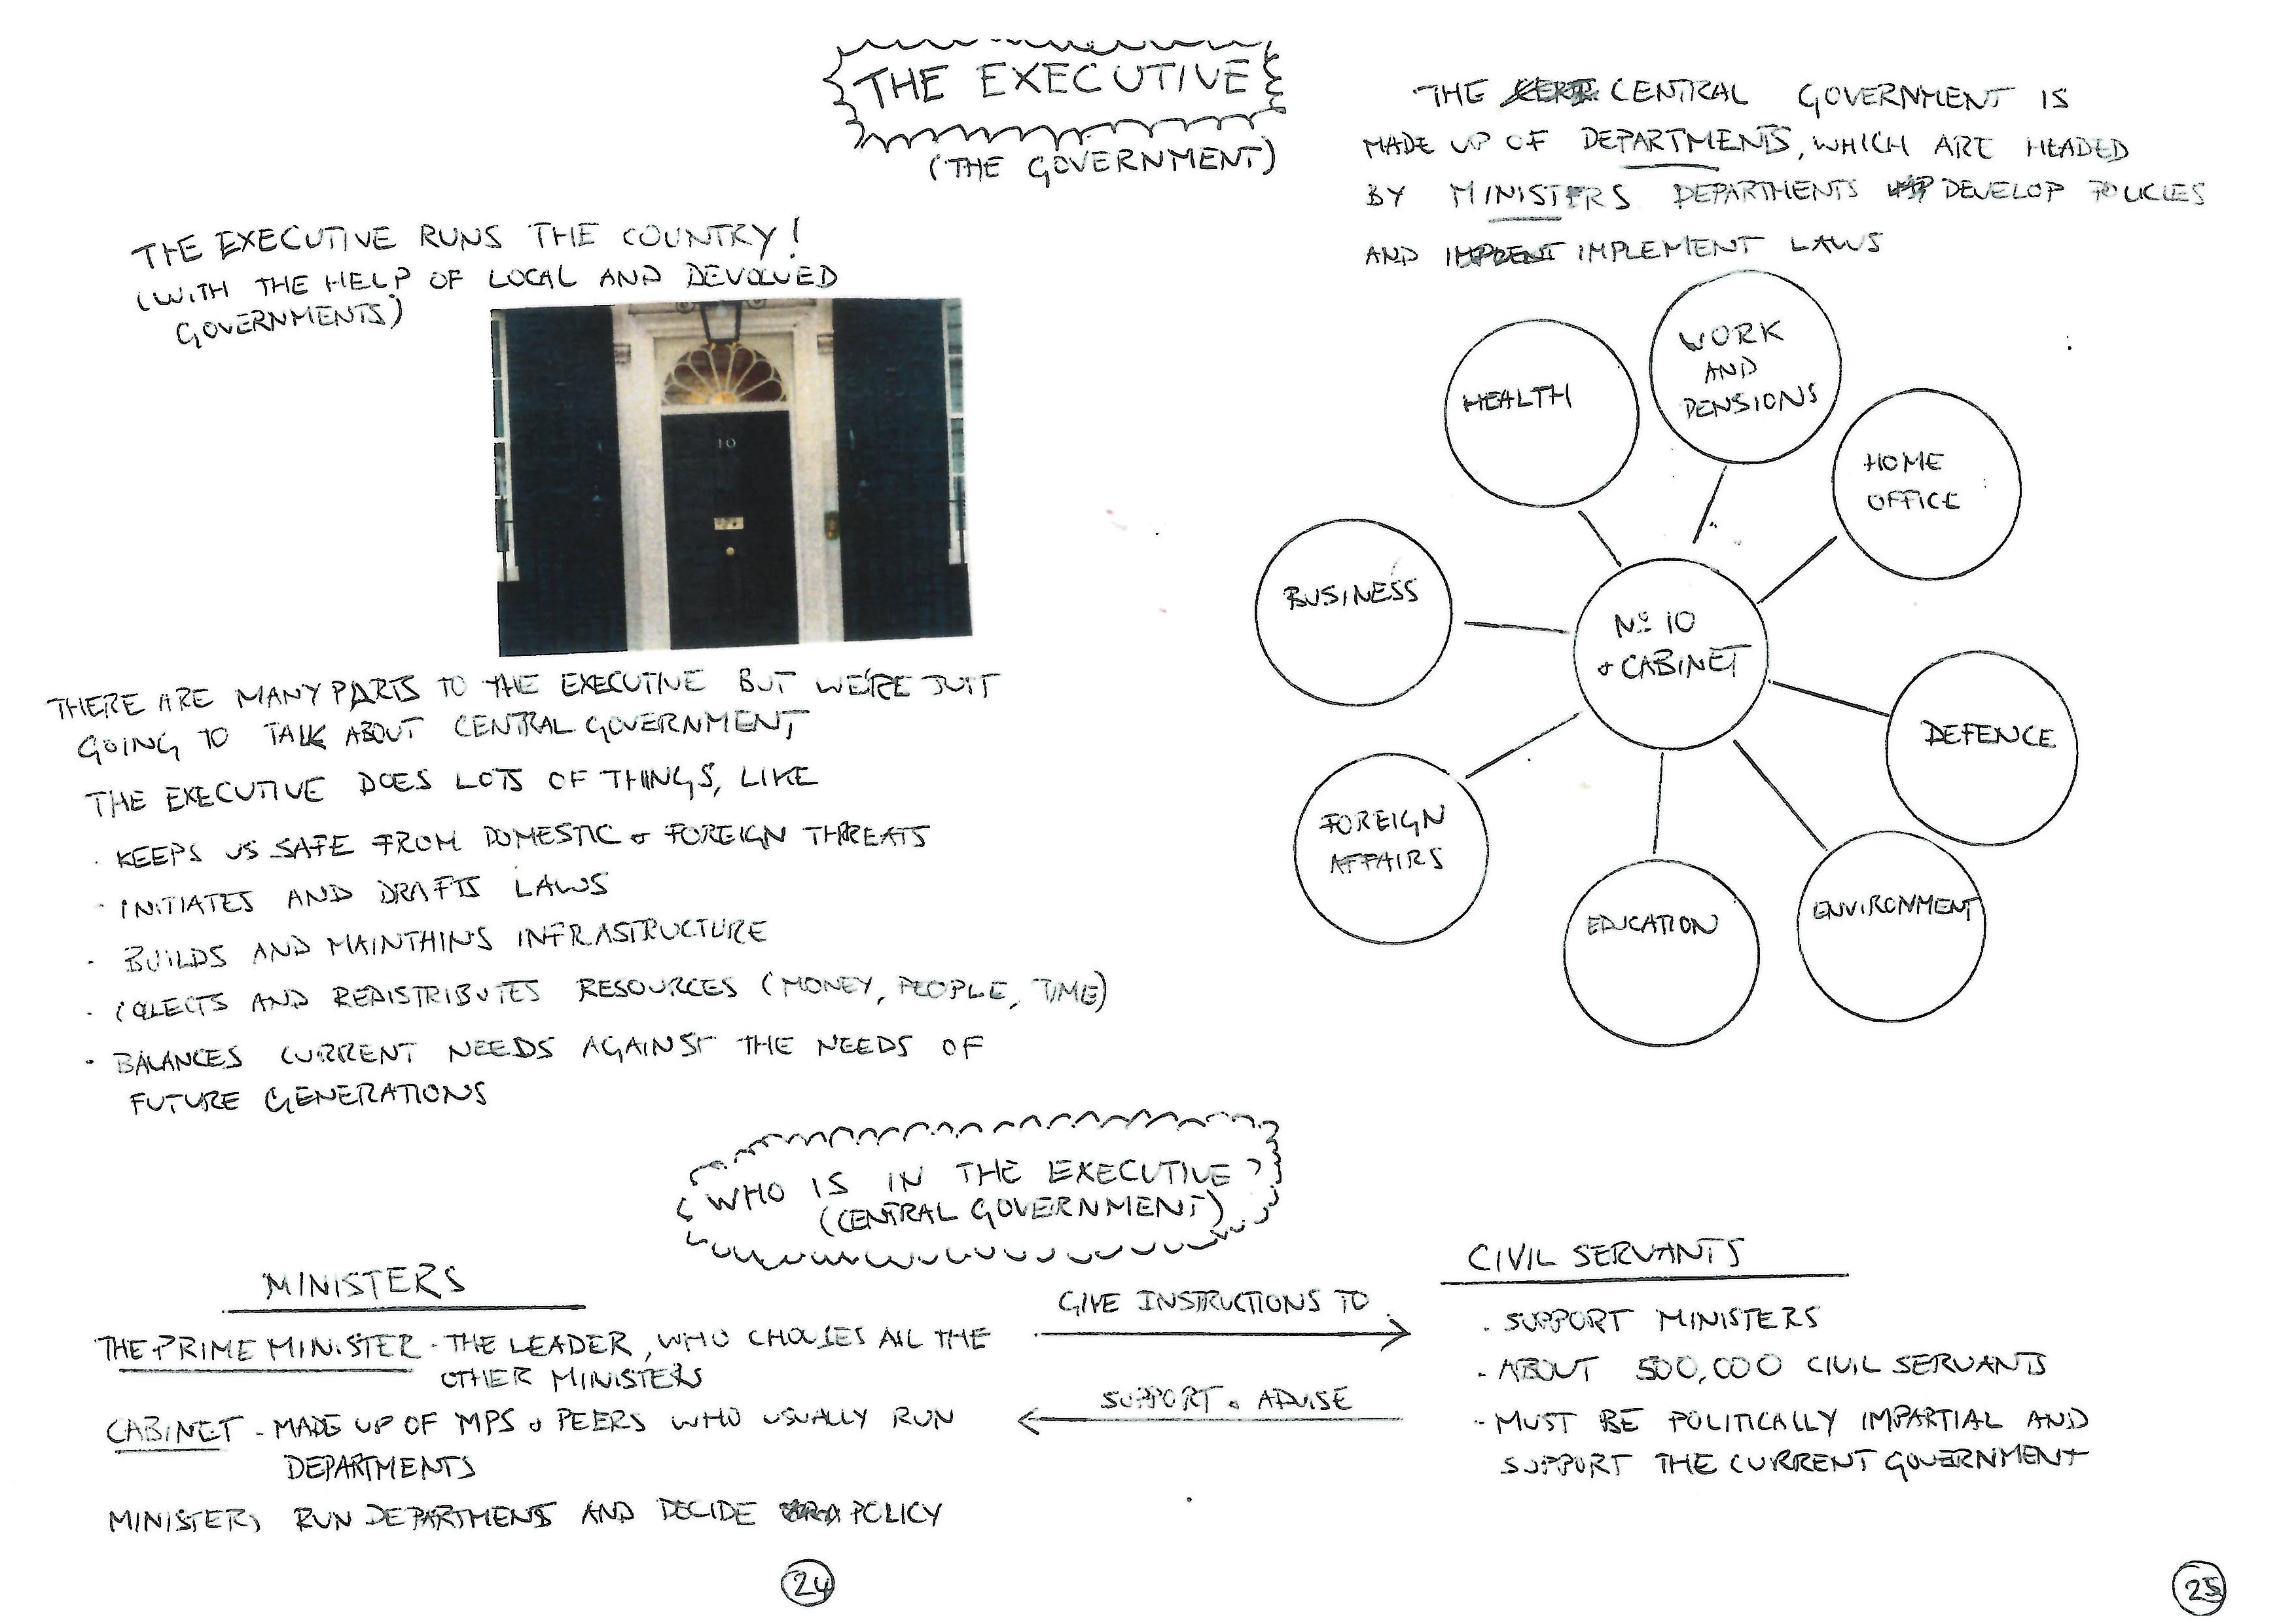 THE EXECUTIVE
(THE GOVERNMENT)
THE EXECUTIVE RUNS THE COUNTRY!
(WITH THE HELP OF LOCAL AND DEVOLVED
GOVERNMENTS)
10
THERE ARE MANY PARTS TO THE EXECUTIVE BUT WE'RE JUST
GOING TO TALK ABOUT CENTRAL GOVERNMENT
THE EXECUTIVE DOES LOTS OF THINGS, LIKE
· KEEPS US SAFE FROM DOMESTIC & FOREIGN THREATS
· INITIATES AND DRAFTS LAWS
· BUILDS AND MAINTAINS INFRASTRUCTURE
· COLLECTS AND REDISTRIBUTES RESOURCES (MONEY, PEOPLE, TIME)
· BALANCES CURRENT NEEDS AGAINST THE NEEDS OF
FUTURE GENERATIONS
THE CENTRAL GOVERNMENT IS
MADE UP OF DEPARTMENTS, WHICH ARE HEADED
BY MINISTERS DEPARTMENTS DEVELOP POLICIES
AND IMPLEMENT LAWS
HEALTH
WORK
AND
PENSIONS
HOME
OFFICE
BUSINESS
Nº 10
& CABINET
DEFENCE
FOREIGN
AFFAIRS
EDUCATION
ENVIRONMENT
WHO IS IN THE EXECUTIVE?
(CENTRAL GOVERNMENT)
MINISTERS
THE PRIME MINISTER - THE LEADER, WHO CHOOSES ALL THE
OTHER MINISTERS
CABINET - MADE UP OF MPS & PEERS WHO USUALLY RUN
DEPARTMENTS
MINISTERS RUN DEPARTMENTS AND DECIDE POLICY
GIVE INSTRUCTIONS TO
SUPPORT & ADVISE
CIVIL SERVANTS
· SUPPORT MINISTERS
- ABOUT 500,000 CIVIL SERVANTS
- MUST BE POLITICALLY IMPARTIAL AND
SUPPORT THE CURRENT GOVERNMENT
24
25